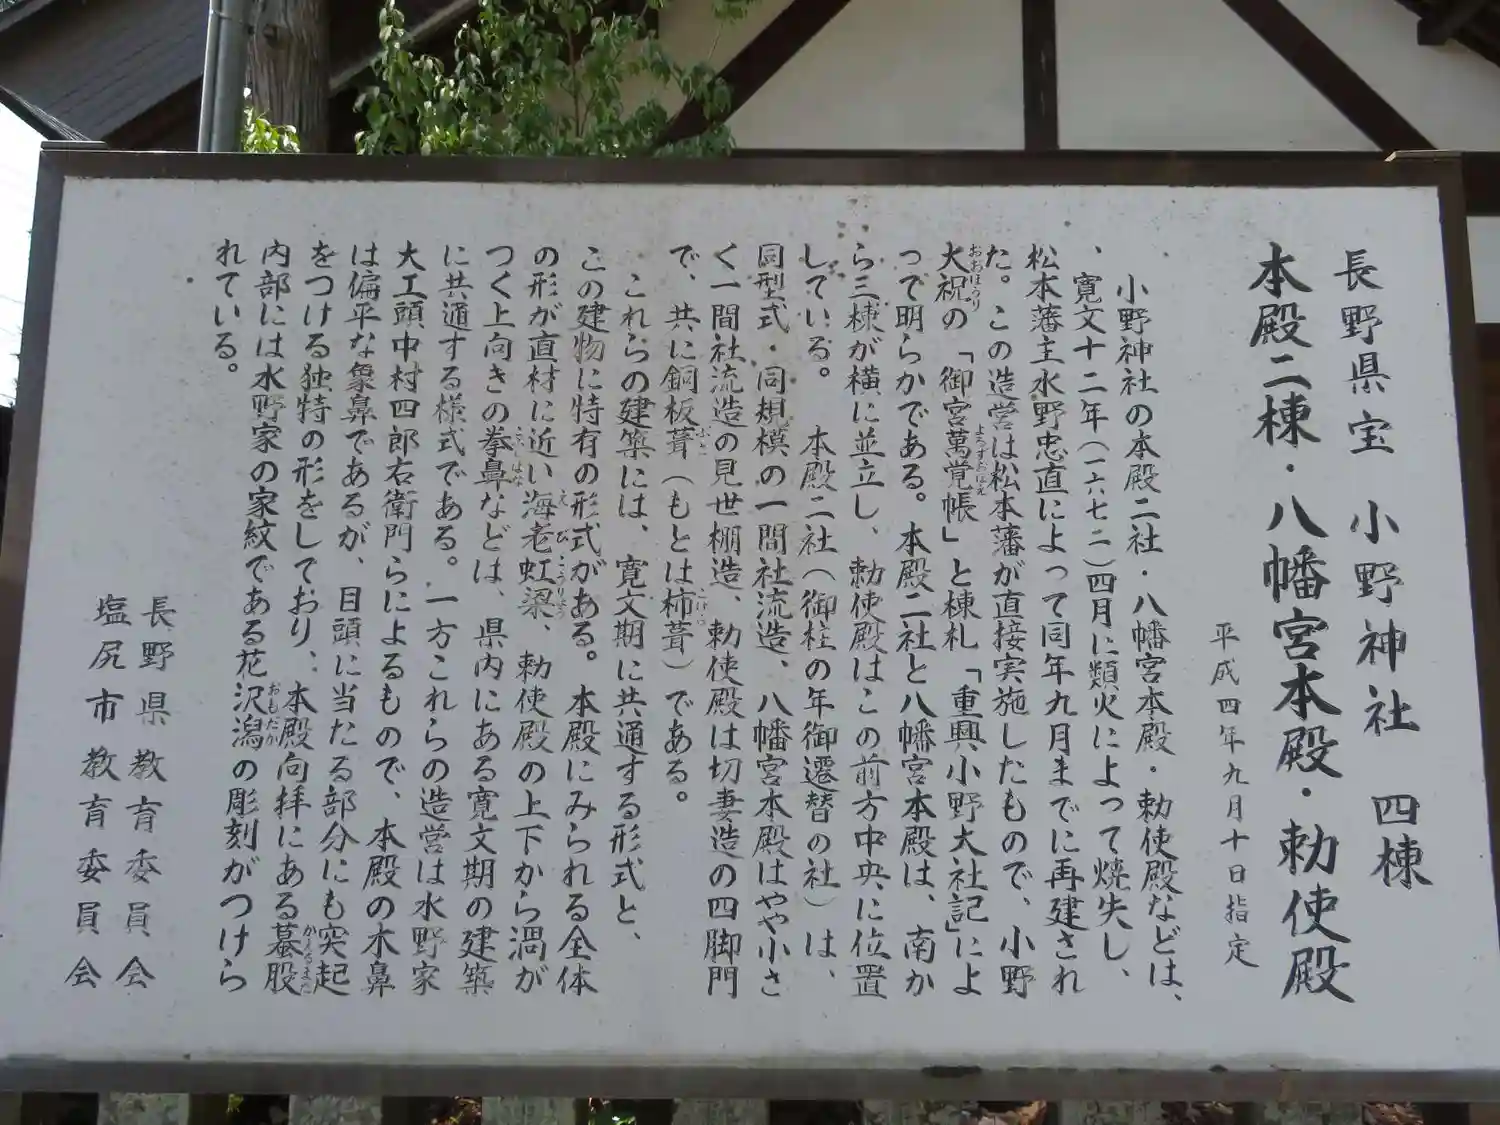 長野県宝 小野神社 四棟
本殿二棟・八幡宮本殿・勅使殿
平成四年九月十日指定
小野神社の本殿二社・八幡宮本殿・勅使殿などは、
、寛文十二年（一六七二）四月に類火によって焼失し、
松本藩主水野忠直によって同年九月までに再建され
た。この造営は松本藩が直接実施したもので、小野
大祝の「御宮萬覚帳」と棟札「重興小野大社記」によ
って明らかである。本殿二社と八幡宮本殿は、南か
ら三棟が横に並立し、勅使殿はこの前方中央に位置
している。 本殿二社（御柱の年御遷替の社）は、
同型式・同規模の一間社流造、八幡宮本殿はやや小さ
く一間社流造の見世棚造、勅使殿は切妻造の四脚門
で、共に銅板葺（もとは杮葺）である。
これらの建築には、寛文期に共通する形式と、
この建物に特有の形式がある。本殿にみられる全体
の形が直材に近い海老虹梁、勅使殿の上下から渦が
つく上向きの拳鼻などは、県内にある寛文期の建築
に共通する様式である。一方これらの造営は水野家
大工頭中村四郎右衛門らによるもので、本殿の木鼻
は偏平な象鼻であるが、目頭に当たる部分にも突起
をつける独特の形をしており、本殿向拝にある蟇股
内部には水野家の家紋である花沢潟の彫刻がつけら
れている。
長野県教育委員会
塩尻市教育委員会